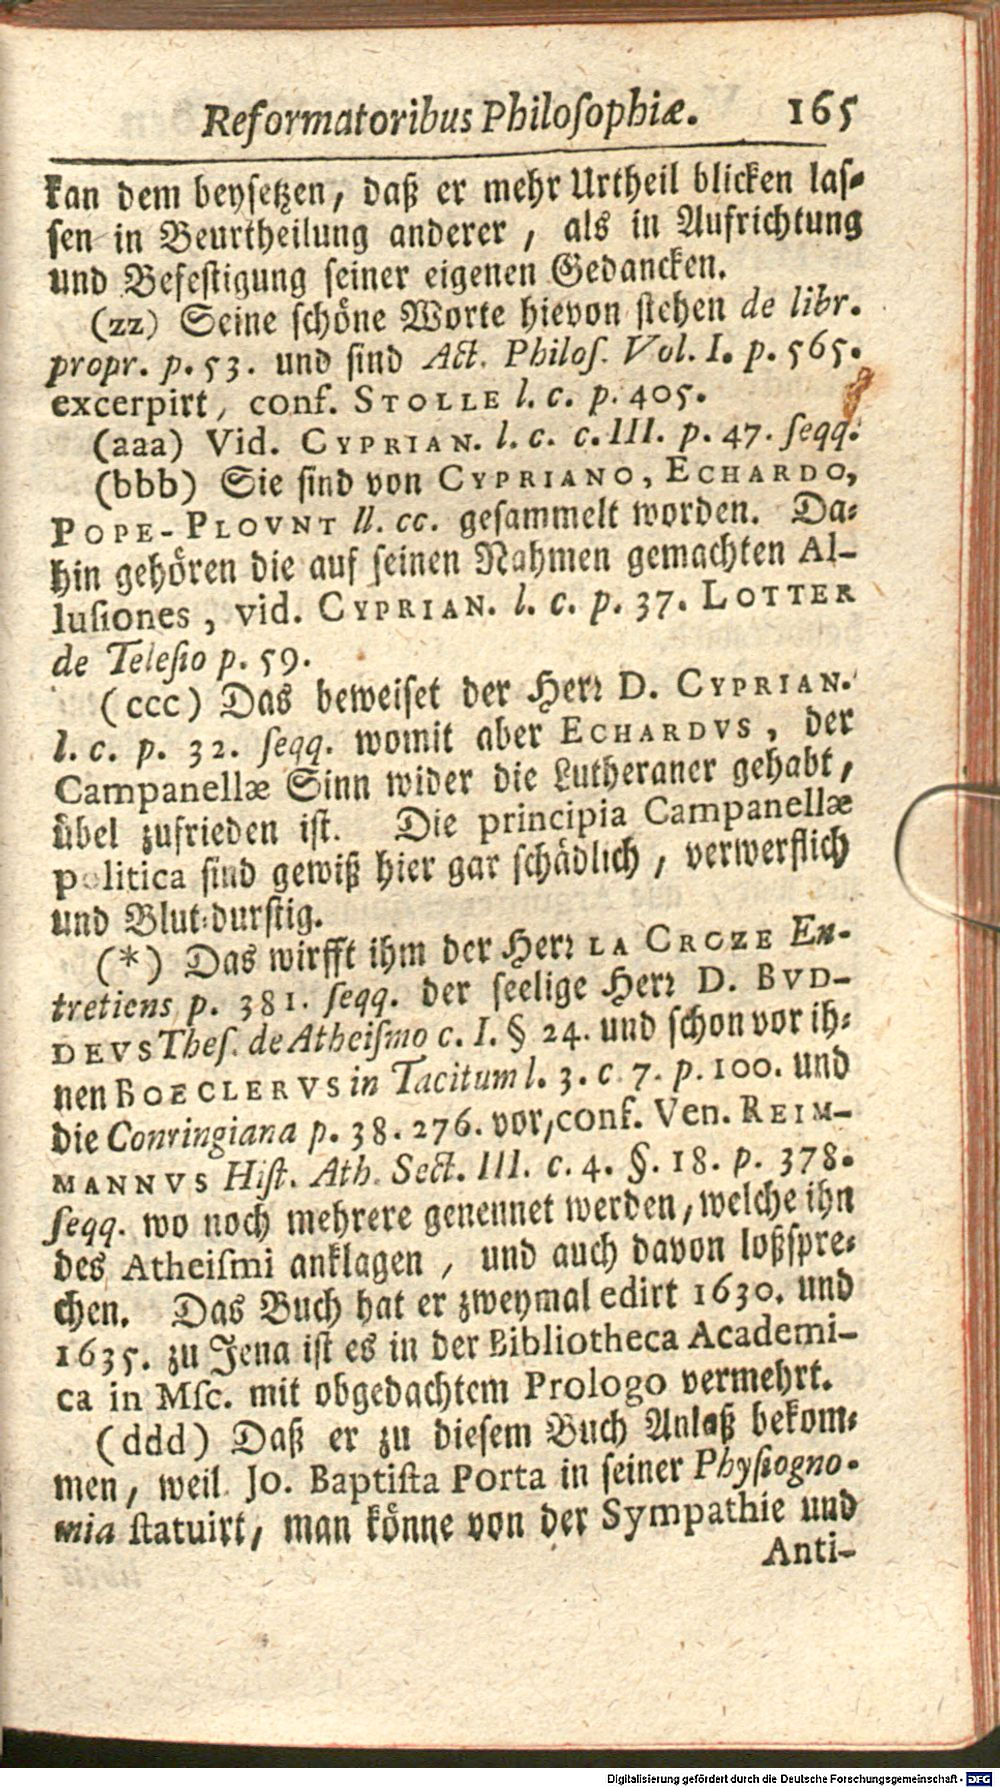 Reformatoribus Philoſophiæ. 165
kan dem beyſetzen, daß er mehr Urtheil blicken laſ-
ſen in Beurtheilung anderer, als in Aufrichtung
und Befeſtigung ſeiner eigenen Gedancken.
(zz) Seine ſchöne Worte hievon ſtehen de libr.
propr. p. 53. und ſind Act. Philoſ. Vol. I. p. 565.
excerpirt, conf. STOLLE l. c. p. 405.
(aaa) Vid. CYPRIAN. l. c. c. III. p. 47. ſeqq.
(bbb) Sie ſind von CYPRIANO, ECHARDO,
POPE-PLOVNT ll. cc. geſammelt worden. Da-
hin gehören die auf ſeinen Nahmen gemachten Al-
luſiones, vid. CYPRIAN. l. c. p. 37. LOTTER
de Teleſio p. 59.
(ccc) Das beweiſet der Herr D. CYPRIAN.
l. c. p. 32. ſeqq. womit aber ECHARDVS, der
Campanellæ Sinn wider die Lutheraner gehabt,
übel zufrieden iſt. Die principia Campanellæ
politica ſind gewiß hier gar ſchädlich, verwerflich
und Blut-durſtig.
(*) Das wirfft ihm der Herr LA CROZE En-
tretiens p. 381. ſeqq. der ſeelige Herr D. BVD-
DEVS Theſ. de Atheiſmo c. I. § 24. und ſchon vor ih-
nen BOECLERVS in Tacitum l. 3. c. 7. p. 100. und
die Conringiana p. 38. 276. vor, conf. Ven. REIM-
MANNVS Hiſt. Ath. Sect. III. c. 4. §. 18. p. 378.
ſeqq. wo noch mehrere genennet werden, welche ihn
des Atheiſmi anklagen, und auch davon loßſpre-
chen. Das Buch hat er zweymal edirt 1630. und
1635. zu Jena iſt es in der Bibliotheca Academi-
ca in Mſc. mit obgedachtem Prologo vermehrt.
(ddd) Daß er zu dieſem Buch Anlaß bekom-
men, weil Jo. Baptiſta Porta in ſeiner Phyſiogno-
mia ſtatuirt, man könne von der Sympathie und
Anti-
Digitalisierung gefördert durch die Deutsche Forschungsgemeinschaft - DFG